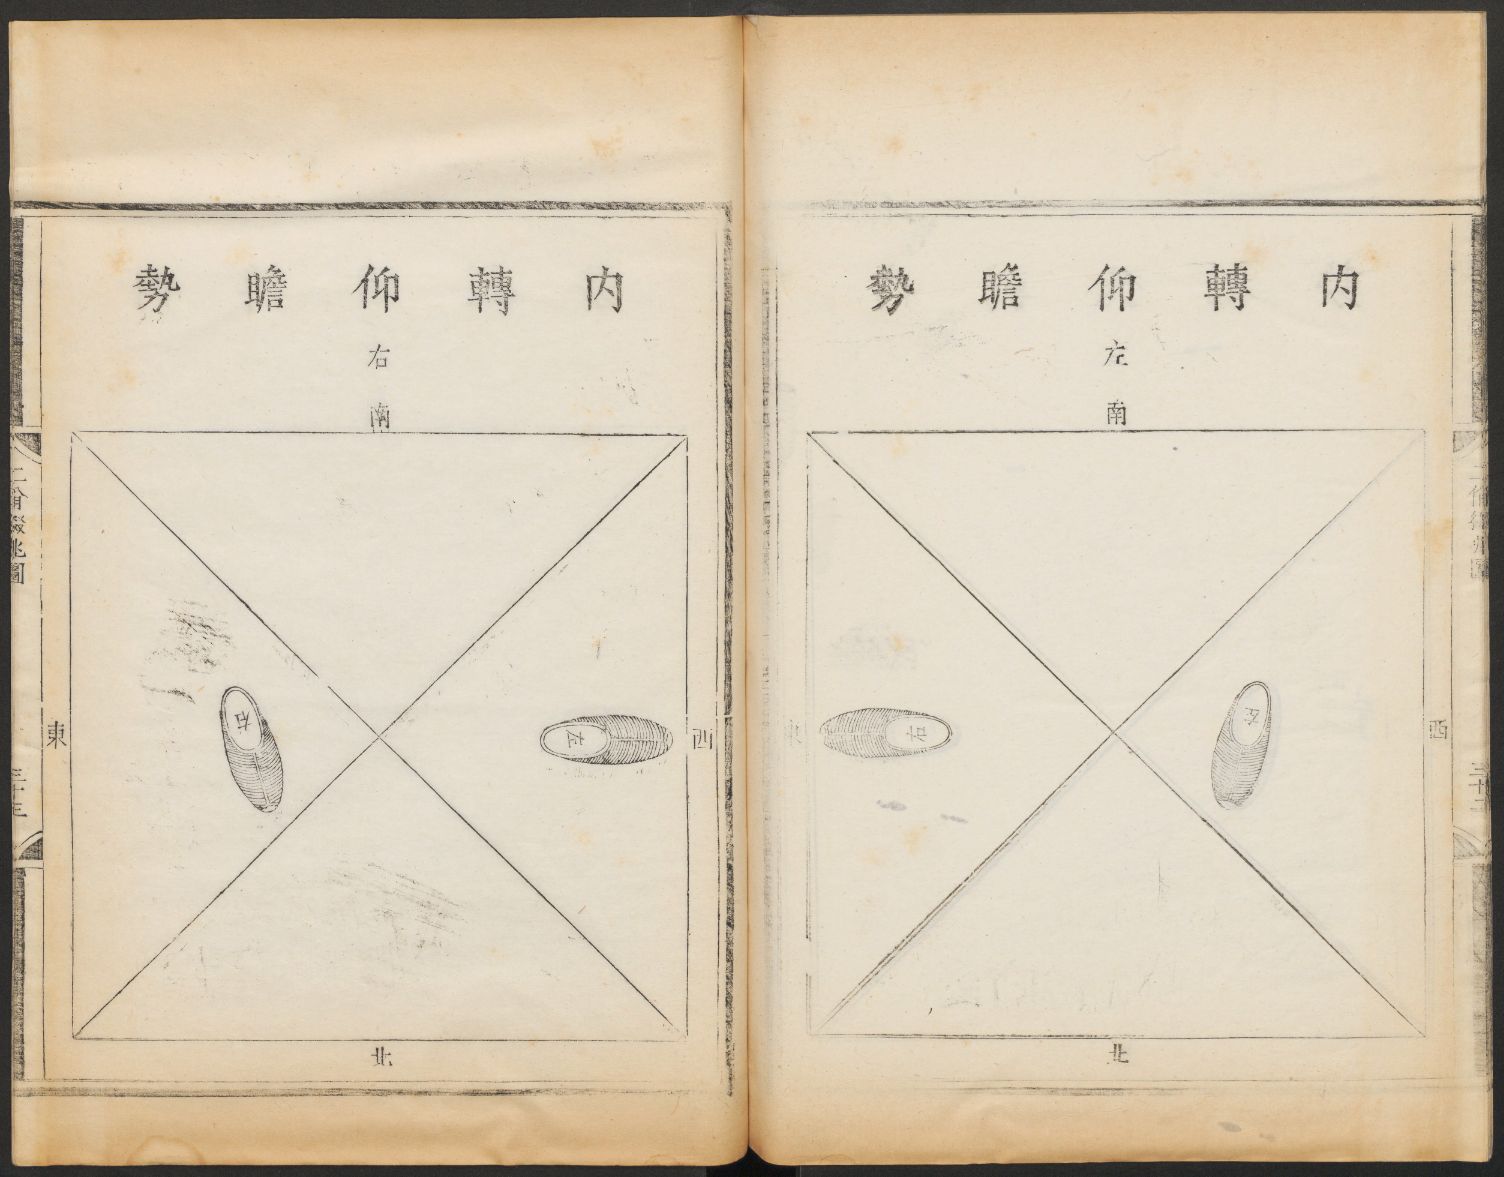 内轉仰瞻勢
左
南
西
左
右
東
北
三十二
内轉仰瞻勢
右
南
西
左
右
東
北
佾綴兆圖
三十三